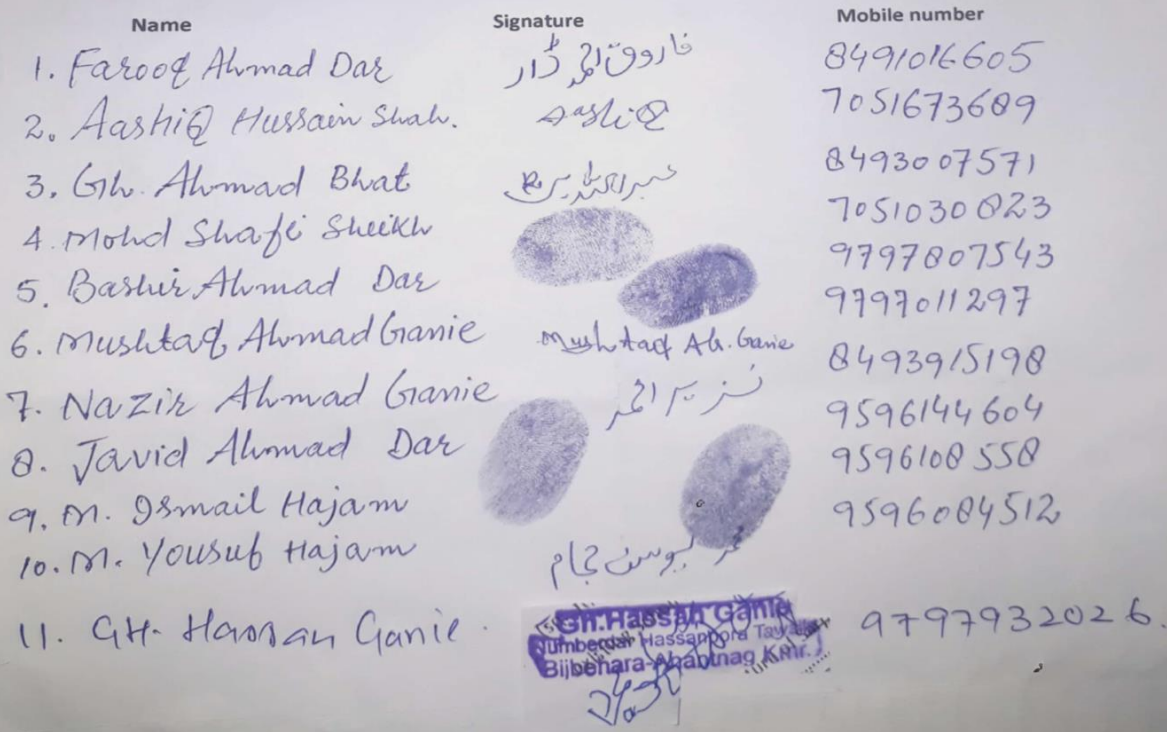 Name Signature Mobile number
1. Farooq Ahmad Dar فاروق احمد ڈار 8491016605
2. AashiQ Hussain Shah. AashiQ 7051673689
3. Gh. Ahmad Bhat 8493007571
4. Mohd Shafi Sheikh 7051030823
5. Bashir Ahmad Dar 9797807543
6. Mushtaq Ahmad Ganie Mushtaq Ah. Ganie 9797011297
7. Nazir Ahmad Ganie نذیر احمد 8493915198
8. Javid Ahmad Dar 9596144604
9. M. Ismail Hajam 9596108558
10. M. Yousuf Hajam محمد یوسف حجام 9596084512
11. GH. Hassan Ganie. Gh.Hassan Ganie 9797932026.
Numberdar Hassanpora Tawela
Bijbehara-Anantnag Kmr.